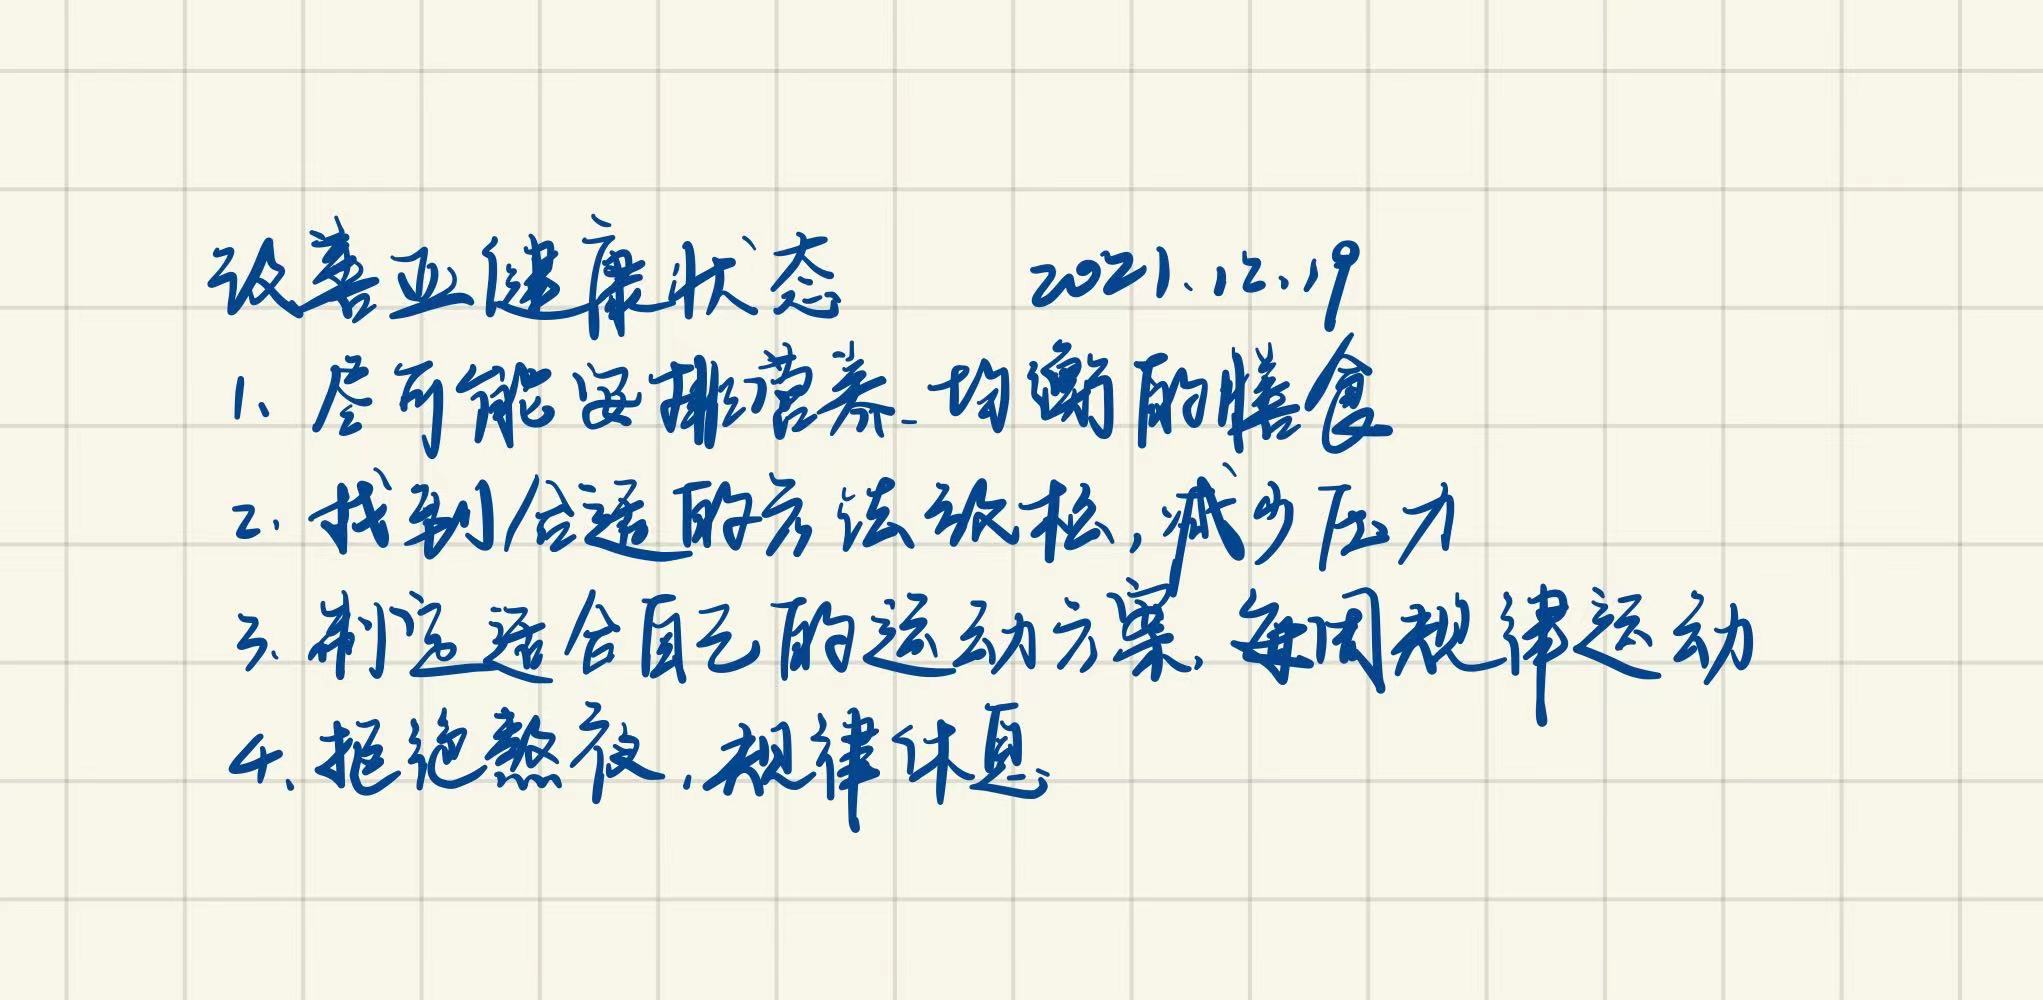 改善亚健康状态 2021.12.19
1、尽可能安排营养、均衡的膳食
2、找到合适的方法放松，减少压力
3、制定适合自己的运动方案，每周规律运动
4、拒绝熬夜，规律休息